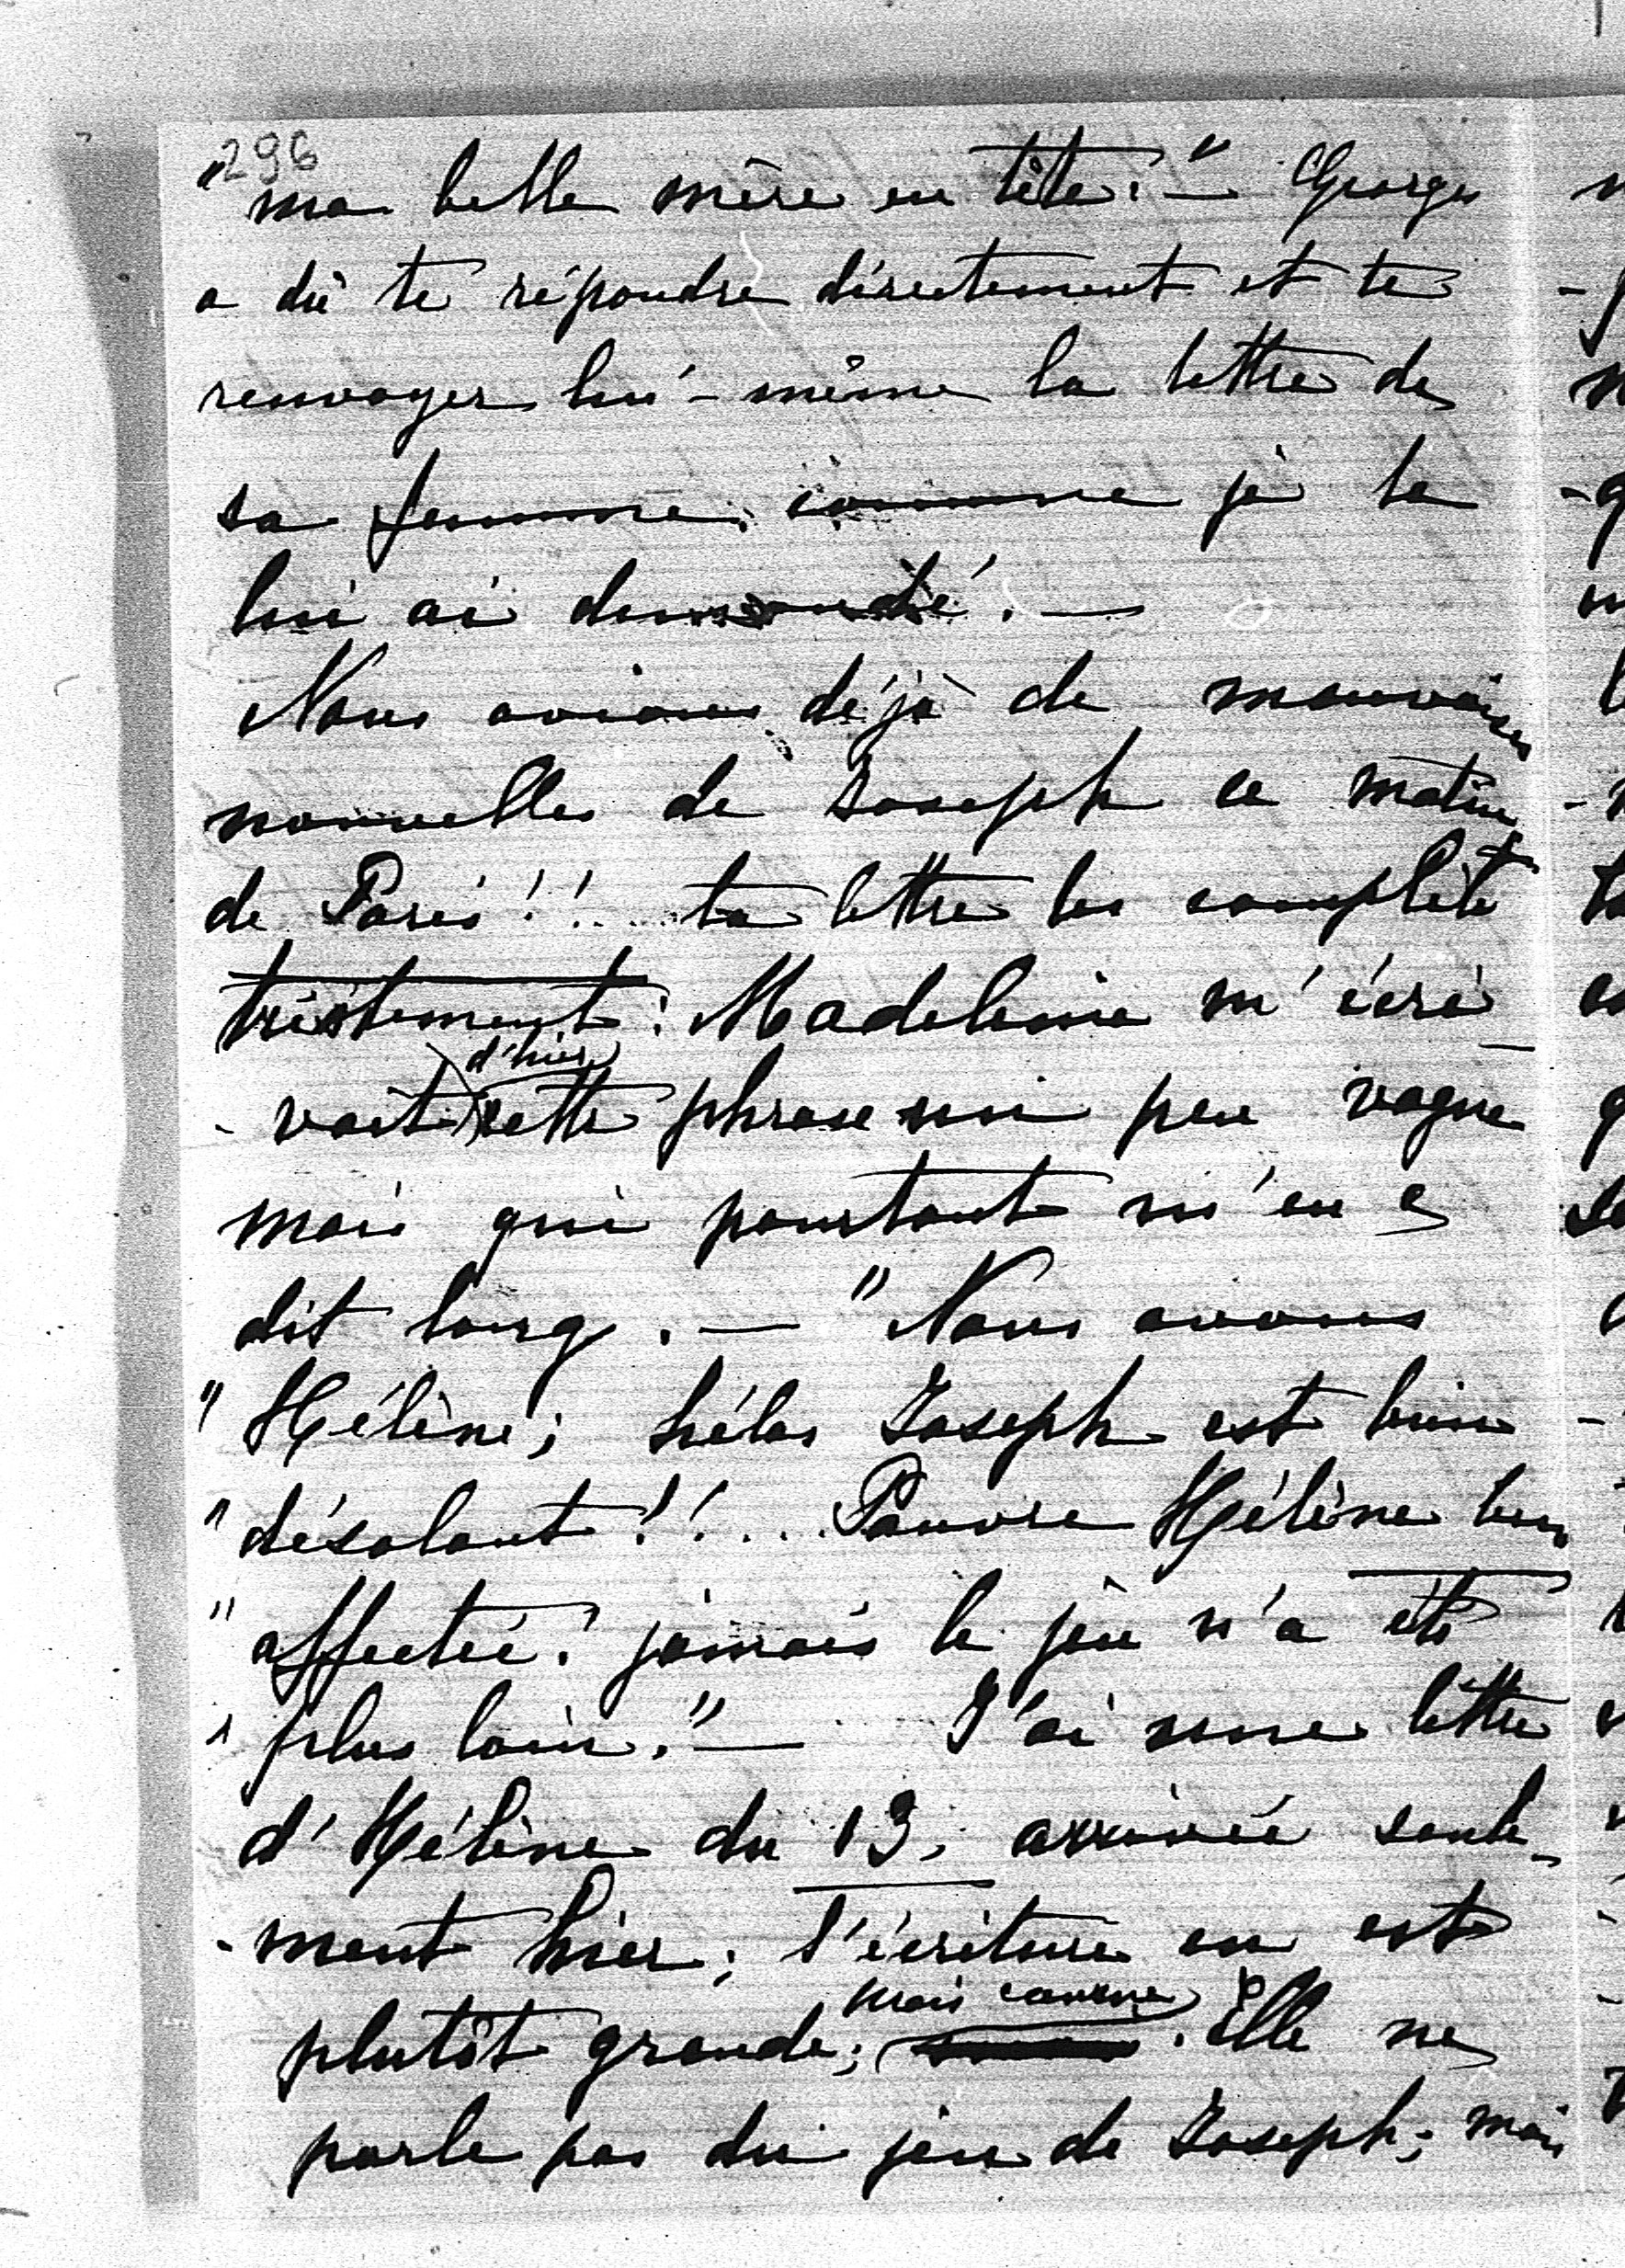 296
"ma belle mère en tête." — Georges
a dû te répondre directement et te
renvoyer lui-même la lettre de
sa femme, comme je le
lui ai demandé. —
Nous avions déjà de mauvaises
nouvelles de Joseph ce matin
de Paris!!... ta lettre les complète
tristement: Madeleine m'écri-
-vait d'hier cette phrase un peu vague
mais qui pourtant m'en
dit long. — "Nous avons
"Hélène; hélas Joseph est bien
"désolant!!... Pauvre Hélène bien
"affectée! jamais le jeu n'a été
"plus loin." — J'ai une lettre
d'Hélène du 13, arrivée seule-
-ment hier; l'écriture en est
mais
plutôt grande; . Elle ne
parle pas du jeu de Joseph; mais